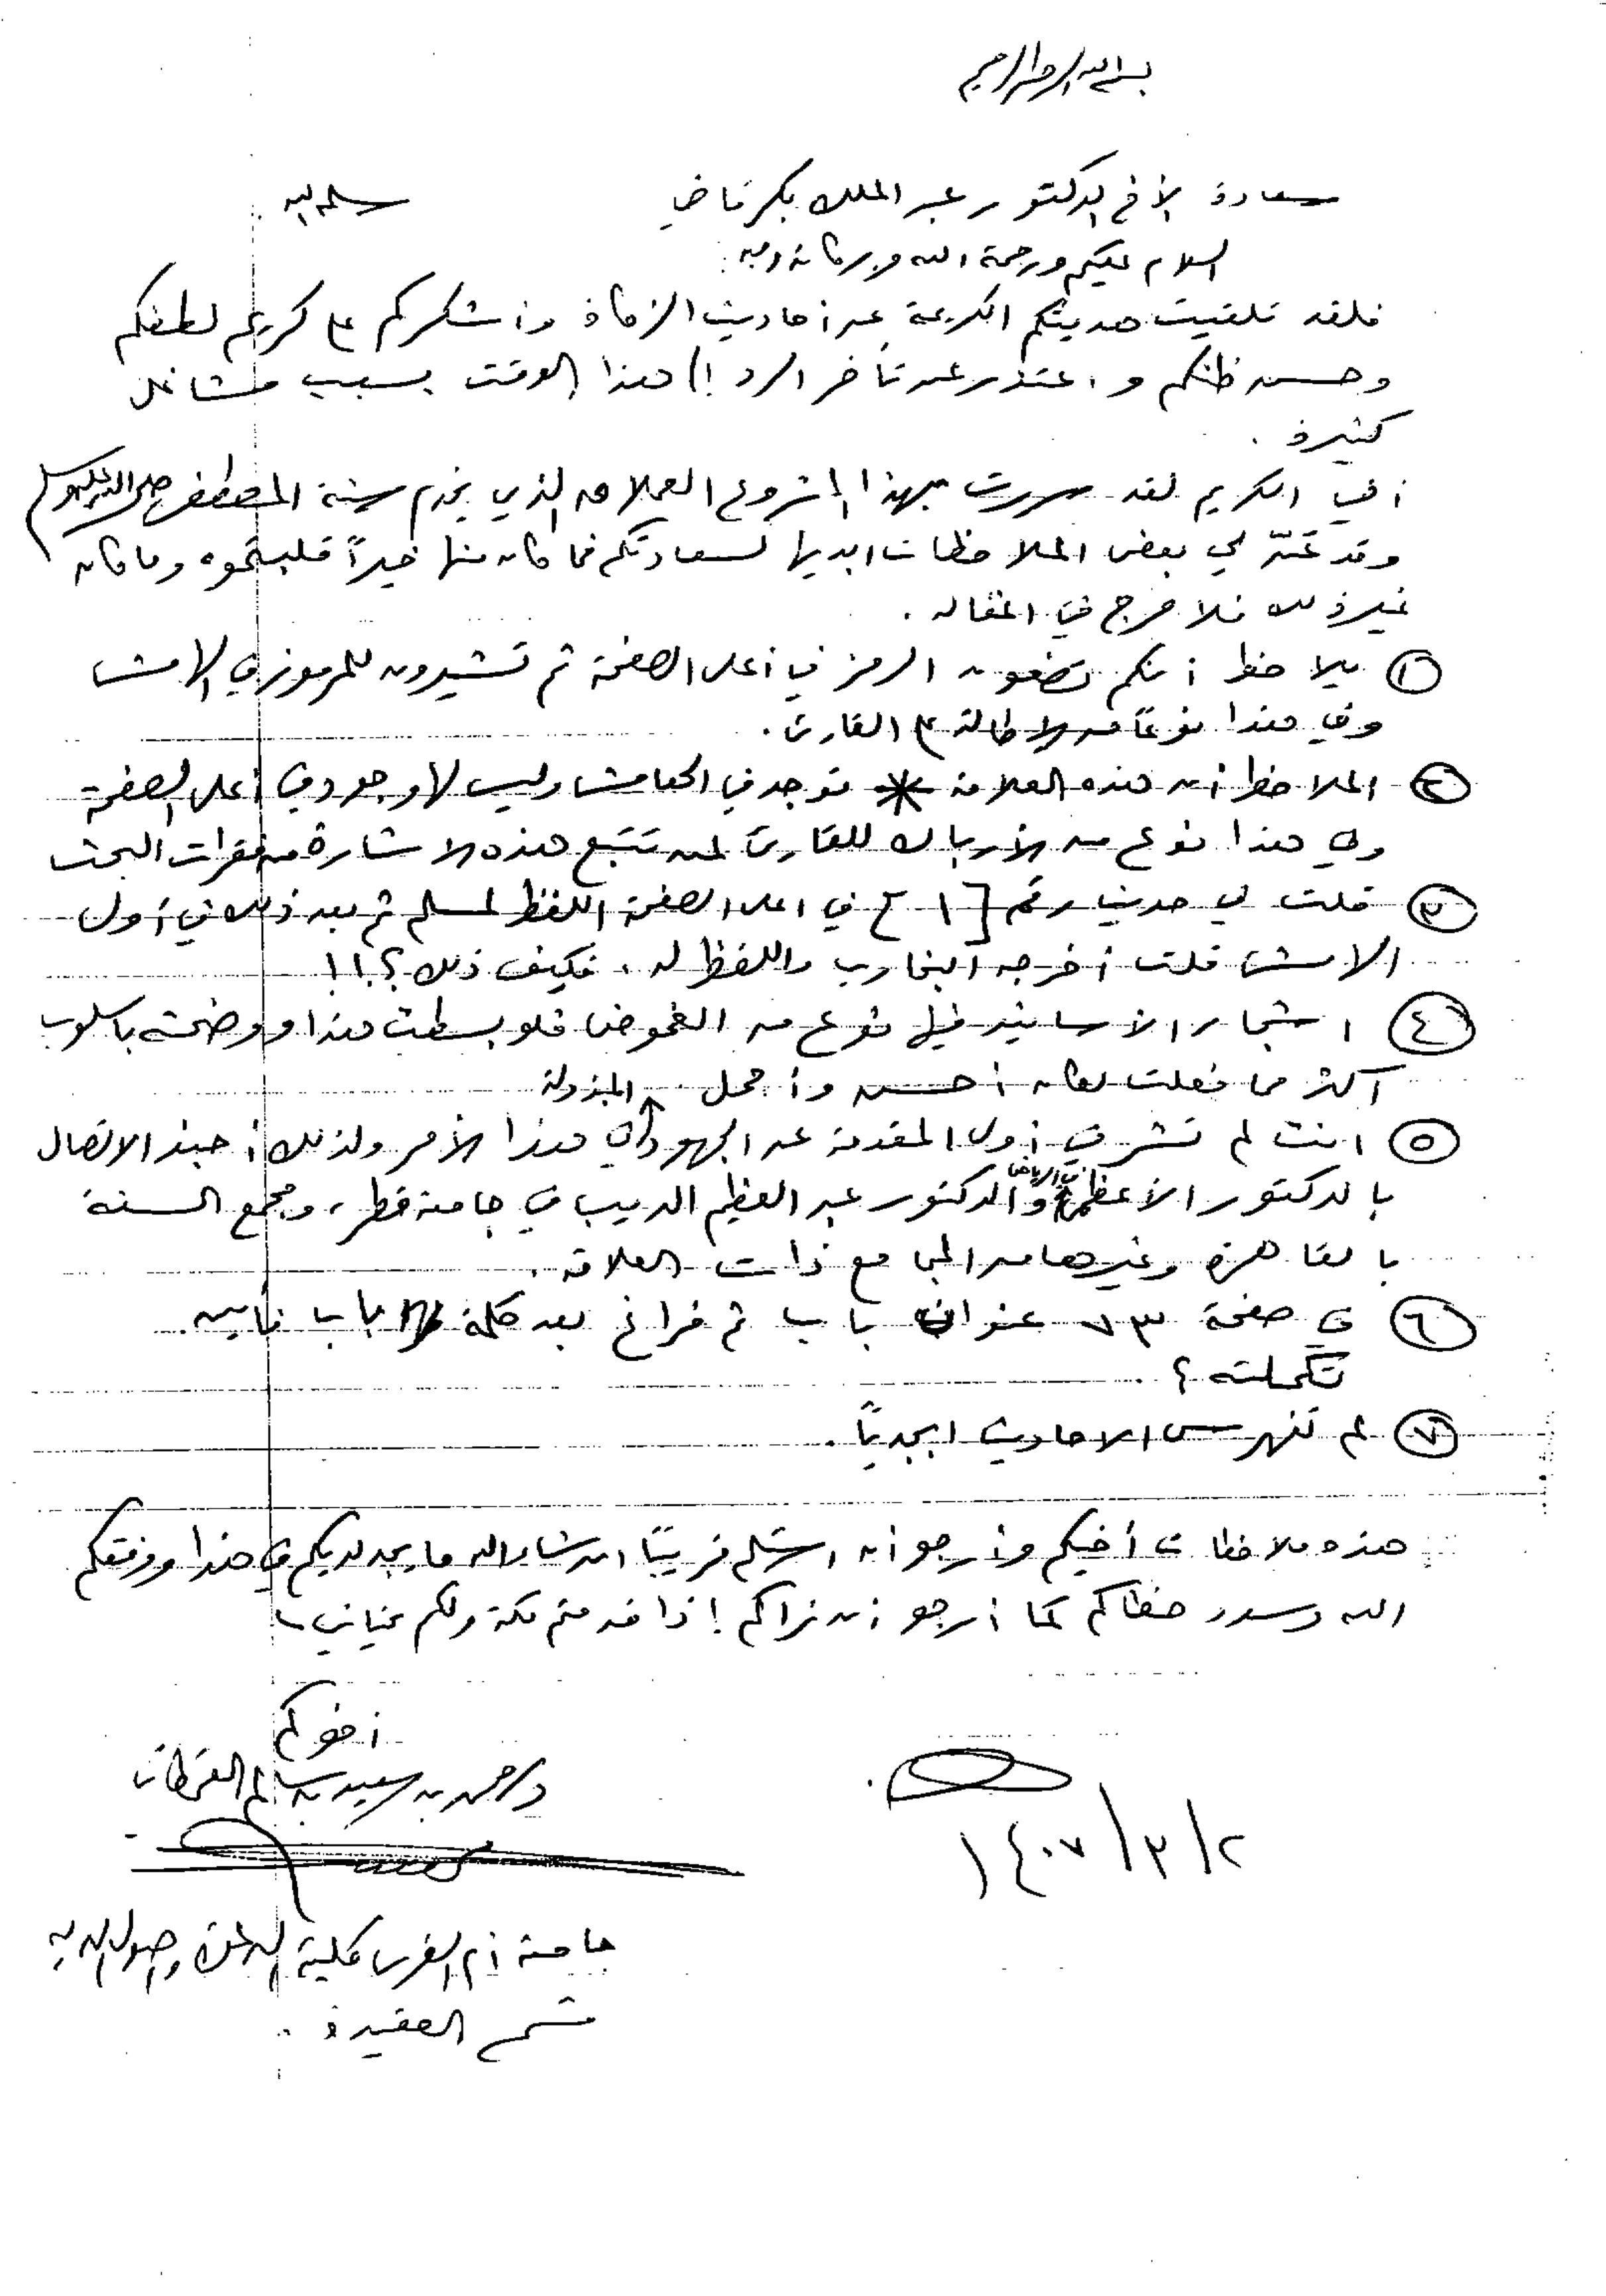 بسم الله الرحمن الرحيم
سعادة الأخ الدكتور عبد الملك بكر قاضي سلمه الله
السلام عليكم ورحمة الله وبركاته وبعد
فلقد تلقيت هديتكم الكريمة عن أحاديث الزكاة وأشكركم على كريم لطفكم
وحسن ظنكم واعتذر عن تأخر الرد إلى هذا الوقت بسبب مشاغل
كثيرة .
أخي الكريم لقد سررت بهذا المشروع العملاق الذي يخدم سنة المصطفى صلى الله عليه وسلم
وقد عنّت لي بعض الملاحظات ابديها لسعادتكم فما كان منها خيراً فلبيتموه وما كان
غير ذلك فلا حرج في اغفاله .
① يلاحظ أنكم تضعون الرمز في أعلى الصفحة ثم تشيرون للمرموز في الهامش
وفي هذا نوعاً من الاطالة على القارئ .
② الملاحظ أن هذه العلامة * توجد في الهامش وليس لها وجود في أعلى الصفحة
وفي هذا نوع من الارباك للقارئ لمن تتبع هذه الاشارة من فقرات البحث
③ قلت في حديث رقم [١] في اعلى الصفحة اللفظ لمسلم ثم بعد ذلك في أول
الهامش قلت أخرجه البخاري واللفظ له . فكيف ذلك ؟!!
④ اشجار الأسانيد فيها نوع من الغموض فلو بسطت هذا ووضحته باسلوب
أكثر مما فعلت لكان أحسن وأجمل
⑤ انت لم تشر في أول المقدمة عن الجهود المبذولة في هذا الأمر ولذلك أحبذ الاتصال
بالدكتور الأعظمي في الرياض والدكتور عبد العظيم الديب في جامعة قطر ، ومجمع السنة
بالقاهرة وغيرها من المجامع ذات العلاقة .
⑥ في صفحة ٧٣ عنوان باب ثم فراغ بعد كلمة باب فأين
تكملته ؟
⑦ لم تفهرس الاحاديث ابجدياً .
هذه ملاحظات أخيكم وأرجو أن استلم قريباً ان شاء الله ما يجد لديكم في هذا ووفقكم
الله وسدد خطاكم كما أرجو أن نراكم إذا قدمتم مكة ولكم تحياتي
أخوكم
د/حمد بن سعيد بن سالم القحطاني
١٤٠٧/٣/٢
جامعة أم القرى كلية الدعوة وأصول الدين
قسم العقيدة .